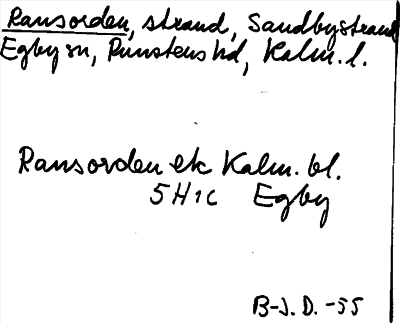 Ransorden, strand, Sandbystrand
Egby sn, Runstens hd, Kalm. l.
Ransorden ek Kalm. bl.
5H1c Egby
B-J. D. -55